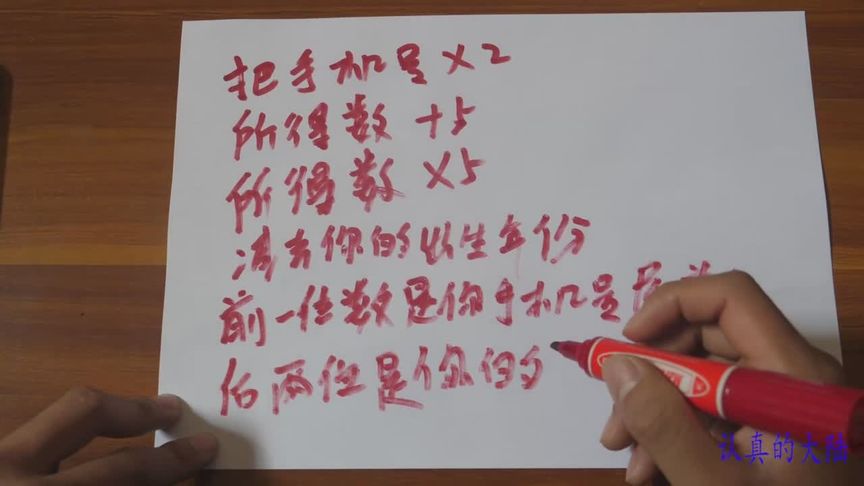 把手机号×2
所得数+5
所得数×5
减去你的出生年份
前一位数是你手机号
后两位是你的
认真的大陆